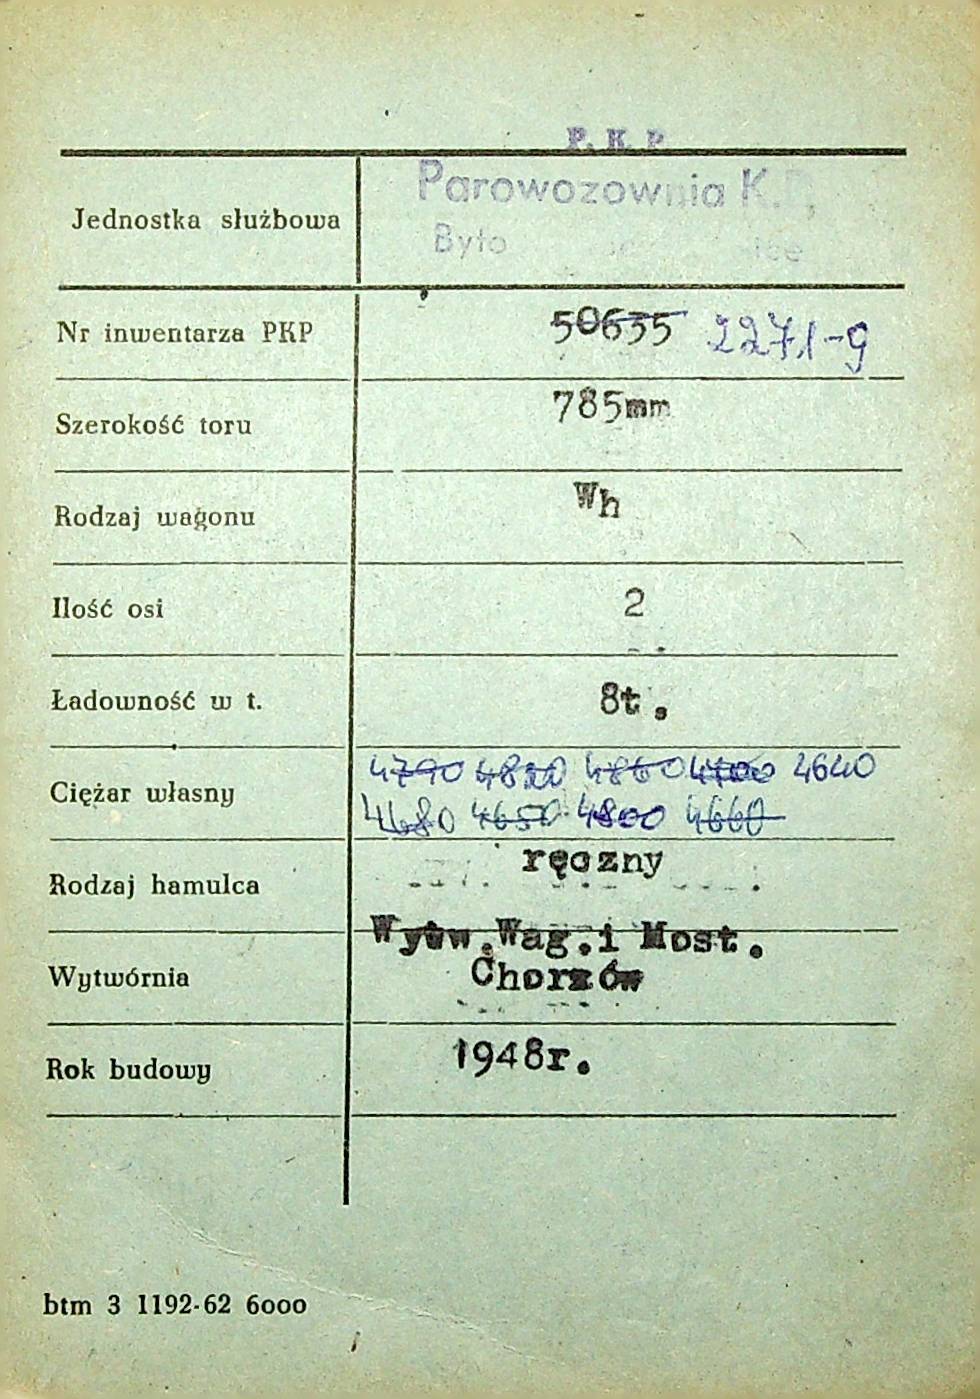 P. K. P
Parowozownia K.D,
Jednostka służbowa
Nr inwentarza PKP 50635 2271-g
Szerokość toru 785mm
Rodzaj wagonu Wh
Ilość osi 2
Ładowność w t. 8t.
4790 4820 4860 4700 4640
Ciężar własny
4680 4650 4800 4660
Rodzaj hamulca ręczny
Wytw.Wag.i Most.
Wytwórnia Chorzów
Rok budowy 1948r.
btm 3 1192-62 6000